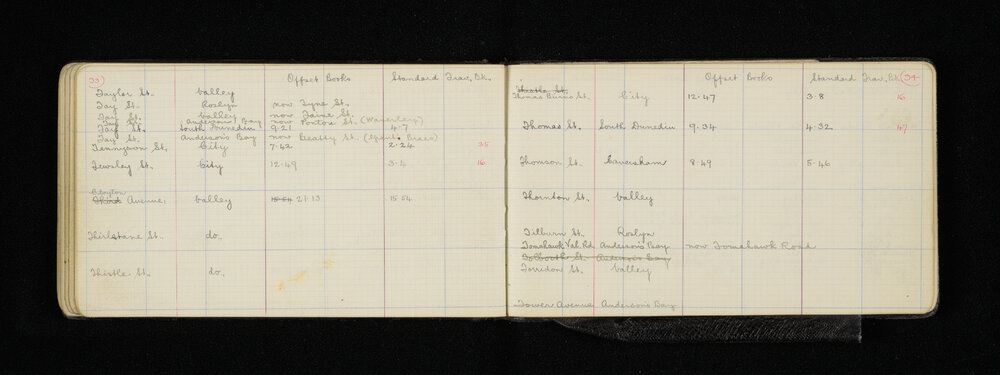 33 Offset Books Standard Trav. Bk.
Taylor St. Valley
Tay St. Roslyn now Tyne St.
Tay St. Valley now Taine St.
Tay St. Anderson's Bay now Ponton St. (Waverley)
Tay St. South Dunedin 9.21 4.7
Tay St. Anderson's Bay now Beatty St.
Tennyson St. City 7.42 2.24 35
Tewsley St. City 12.49 3.4 16
Clayton
Third Avenue. Valley 15 54 21.13 15 54
Thirlstane St. do.
Thistle St. do.
Offset Books Standard Trav. Bk. 34
Thistle St.
Thomas Burns St. City 12.47 3.8 16
Thomas St. South Dunedin 9.34 4.32 47
Thomson St. Caversham 8.49 5.46
Thornton St. Valley
Tilburn St. Roslyn
Tomahawk Val. Rd. Anderson's Bay now Tomahawk Road
Tolbooth St. Anderson's Bay
Torridon St. Valley
Tower Avenue Anderson's Bay